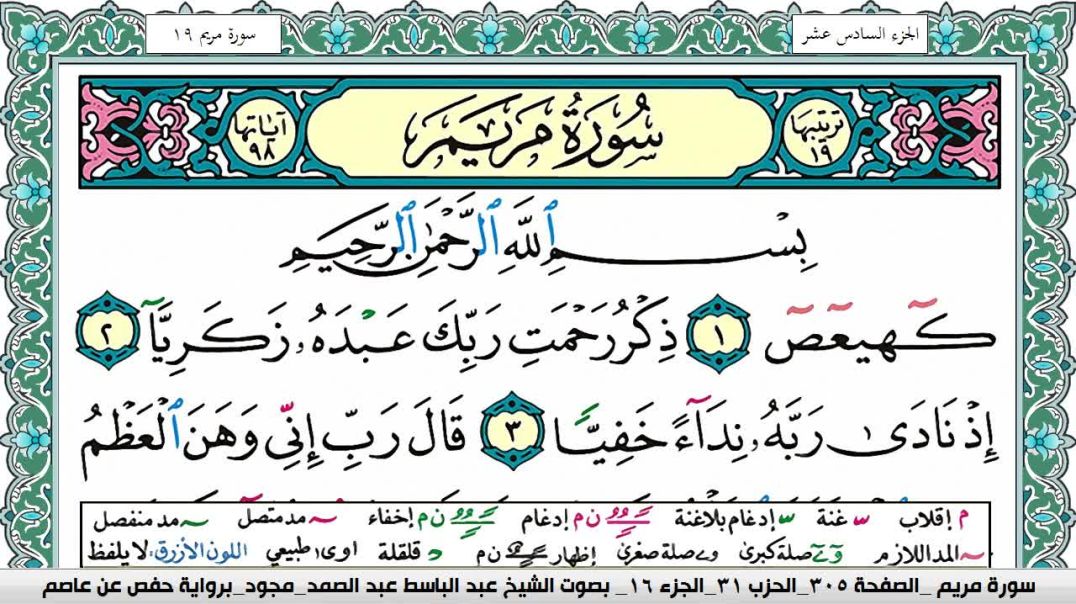 الجزء السادس عشر
سورة مريم ١٩
ترتيبها ١٩
سُورَةُ مَرْيَمَ
آياتها ٩٨
بِسْمِ ٱللَّهِ ٱلرَّحْمَٰنِ ٱلرَّحِيمِ
كٓهيعٓصٓ ١ ذِكْرُ رَحْمَتِ رَبِّكَ عَبْدَهُۥ زَكَرِيَّآ ٢
إِذْ نَادَىٰ رَبَّهُۥ نِدَآءً خَفِيًّا ٣ قَالَ رَبِّ إِنِّى وَهَنَ ٱلْعَظْمُ
م إقلاب غنة إدغام بلاغنة ن م إدغام ن م إخفاء مد متصل مد منفصل
المد اللازم صلة كبرى صلة صغرى إظهار ن م قلقلة طبيعي اللون الأزرق: لا يلفظ
سورة مريم _الصفحة ٣٠٥_الحزب ٣١_الجزء ١٦_ بصوت الشيخ عبد الباسط عبد الصمد_مجود_برواية حفص عن عاصم